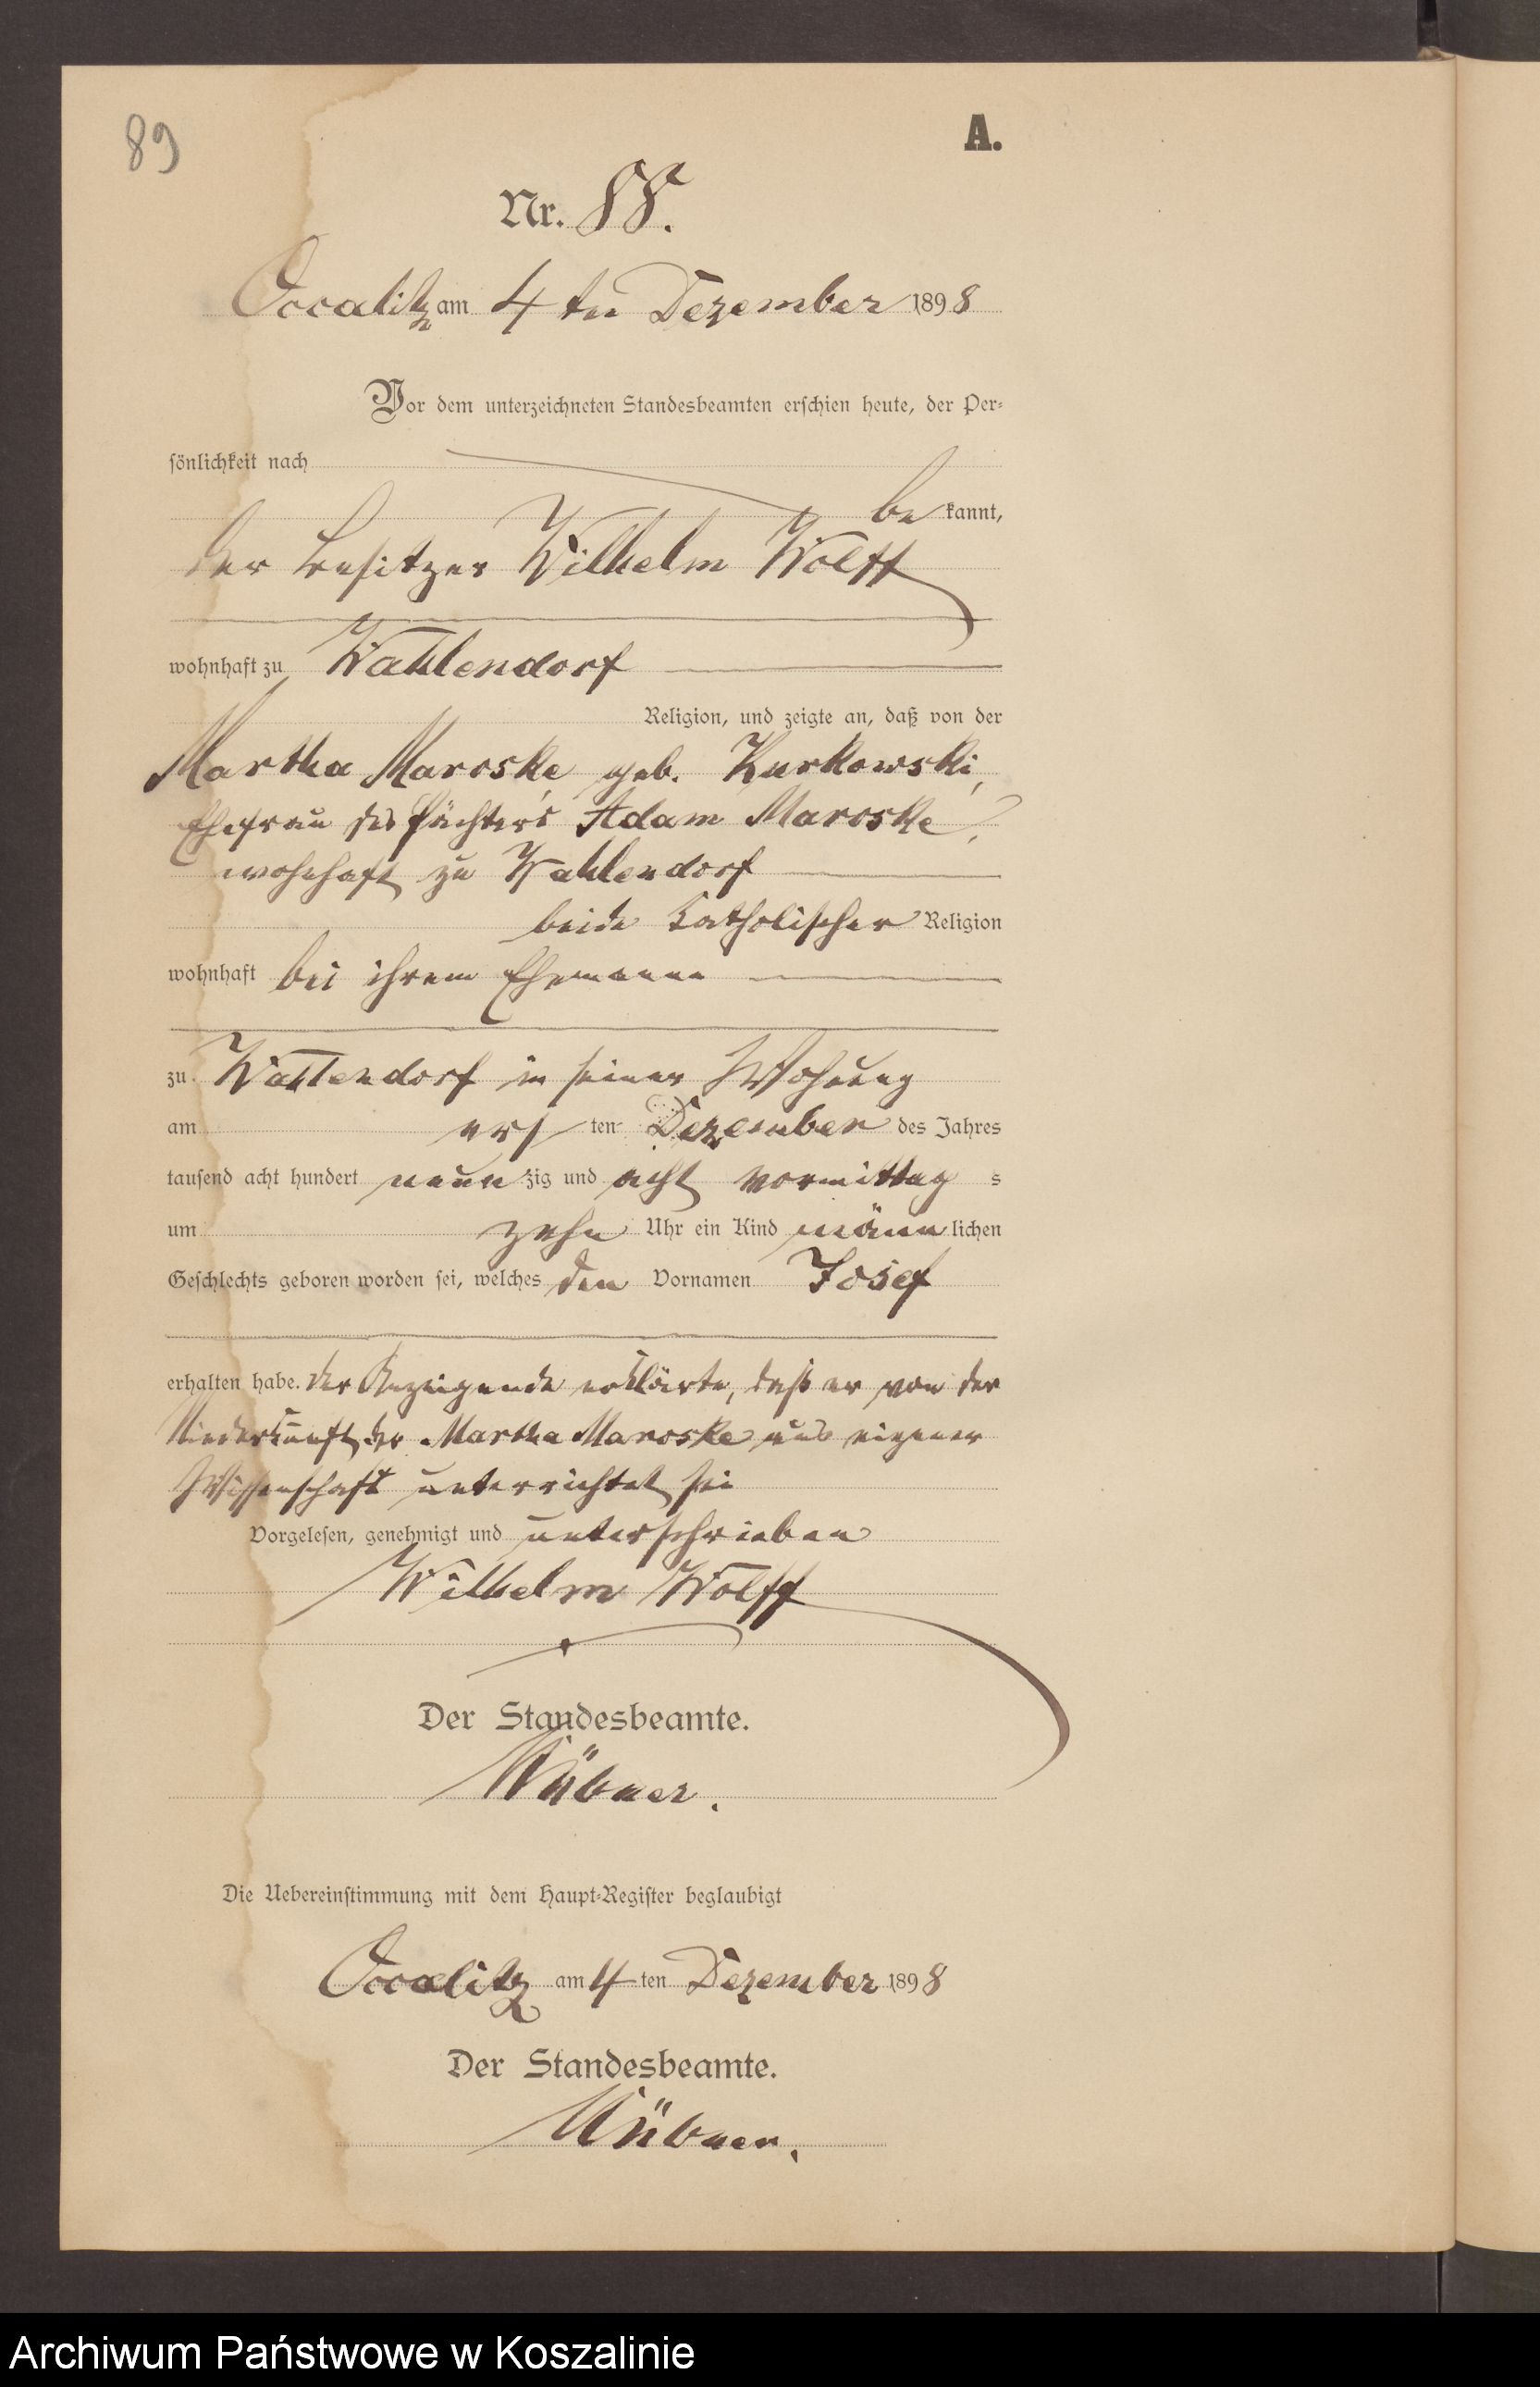 89
A.
Nr. 88.
Occalitz am 4 ten Dezember 1898
Vor dem unterzeichneten Standesbeamten erschien heute, der Per-
sönlichkeit nach
be kannt,
der Besitzer Wilhelm Wolff
wohnhaft zu Wahlendorf
Religion, und zeigte an, daß von der
Martha Maroske, geb. Kurkowski,
Ehefrau des Pächters Adam Maroske,
wohnhaft zu Wahlendorf
beide katholischer Religion
wohnhaft bei ihrem Ehemanne
zu Wahlendorf in seiner Wohnung
am ers ten Dezember des Jahres
tausend acht hundert neun zig und acht vormittag s
um zehn Uhr ein Kind männ lichen
Geschlechts geboren worden sei, welches den Vornamen Josef
erhalten habe. Der Anzeigende erklärte, daß er von der
Niederkunft der Martha Maroske aus eigener
Wissenschaft unterrichtet sei
Vorgelesen, genehmigt und unterschrieben
Wilhelm Wolff
Der Standesbeamte.
Die Uebereinstimmung mit dem Haupt-Register beglaubigt
Occalitz am 4 ten Dezember 1898
Der Standesbeamte.
Archiwum Państwowe w Koszalinie